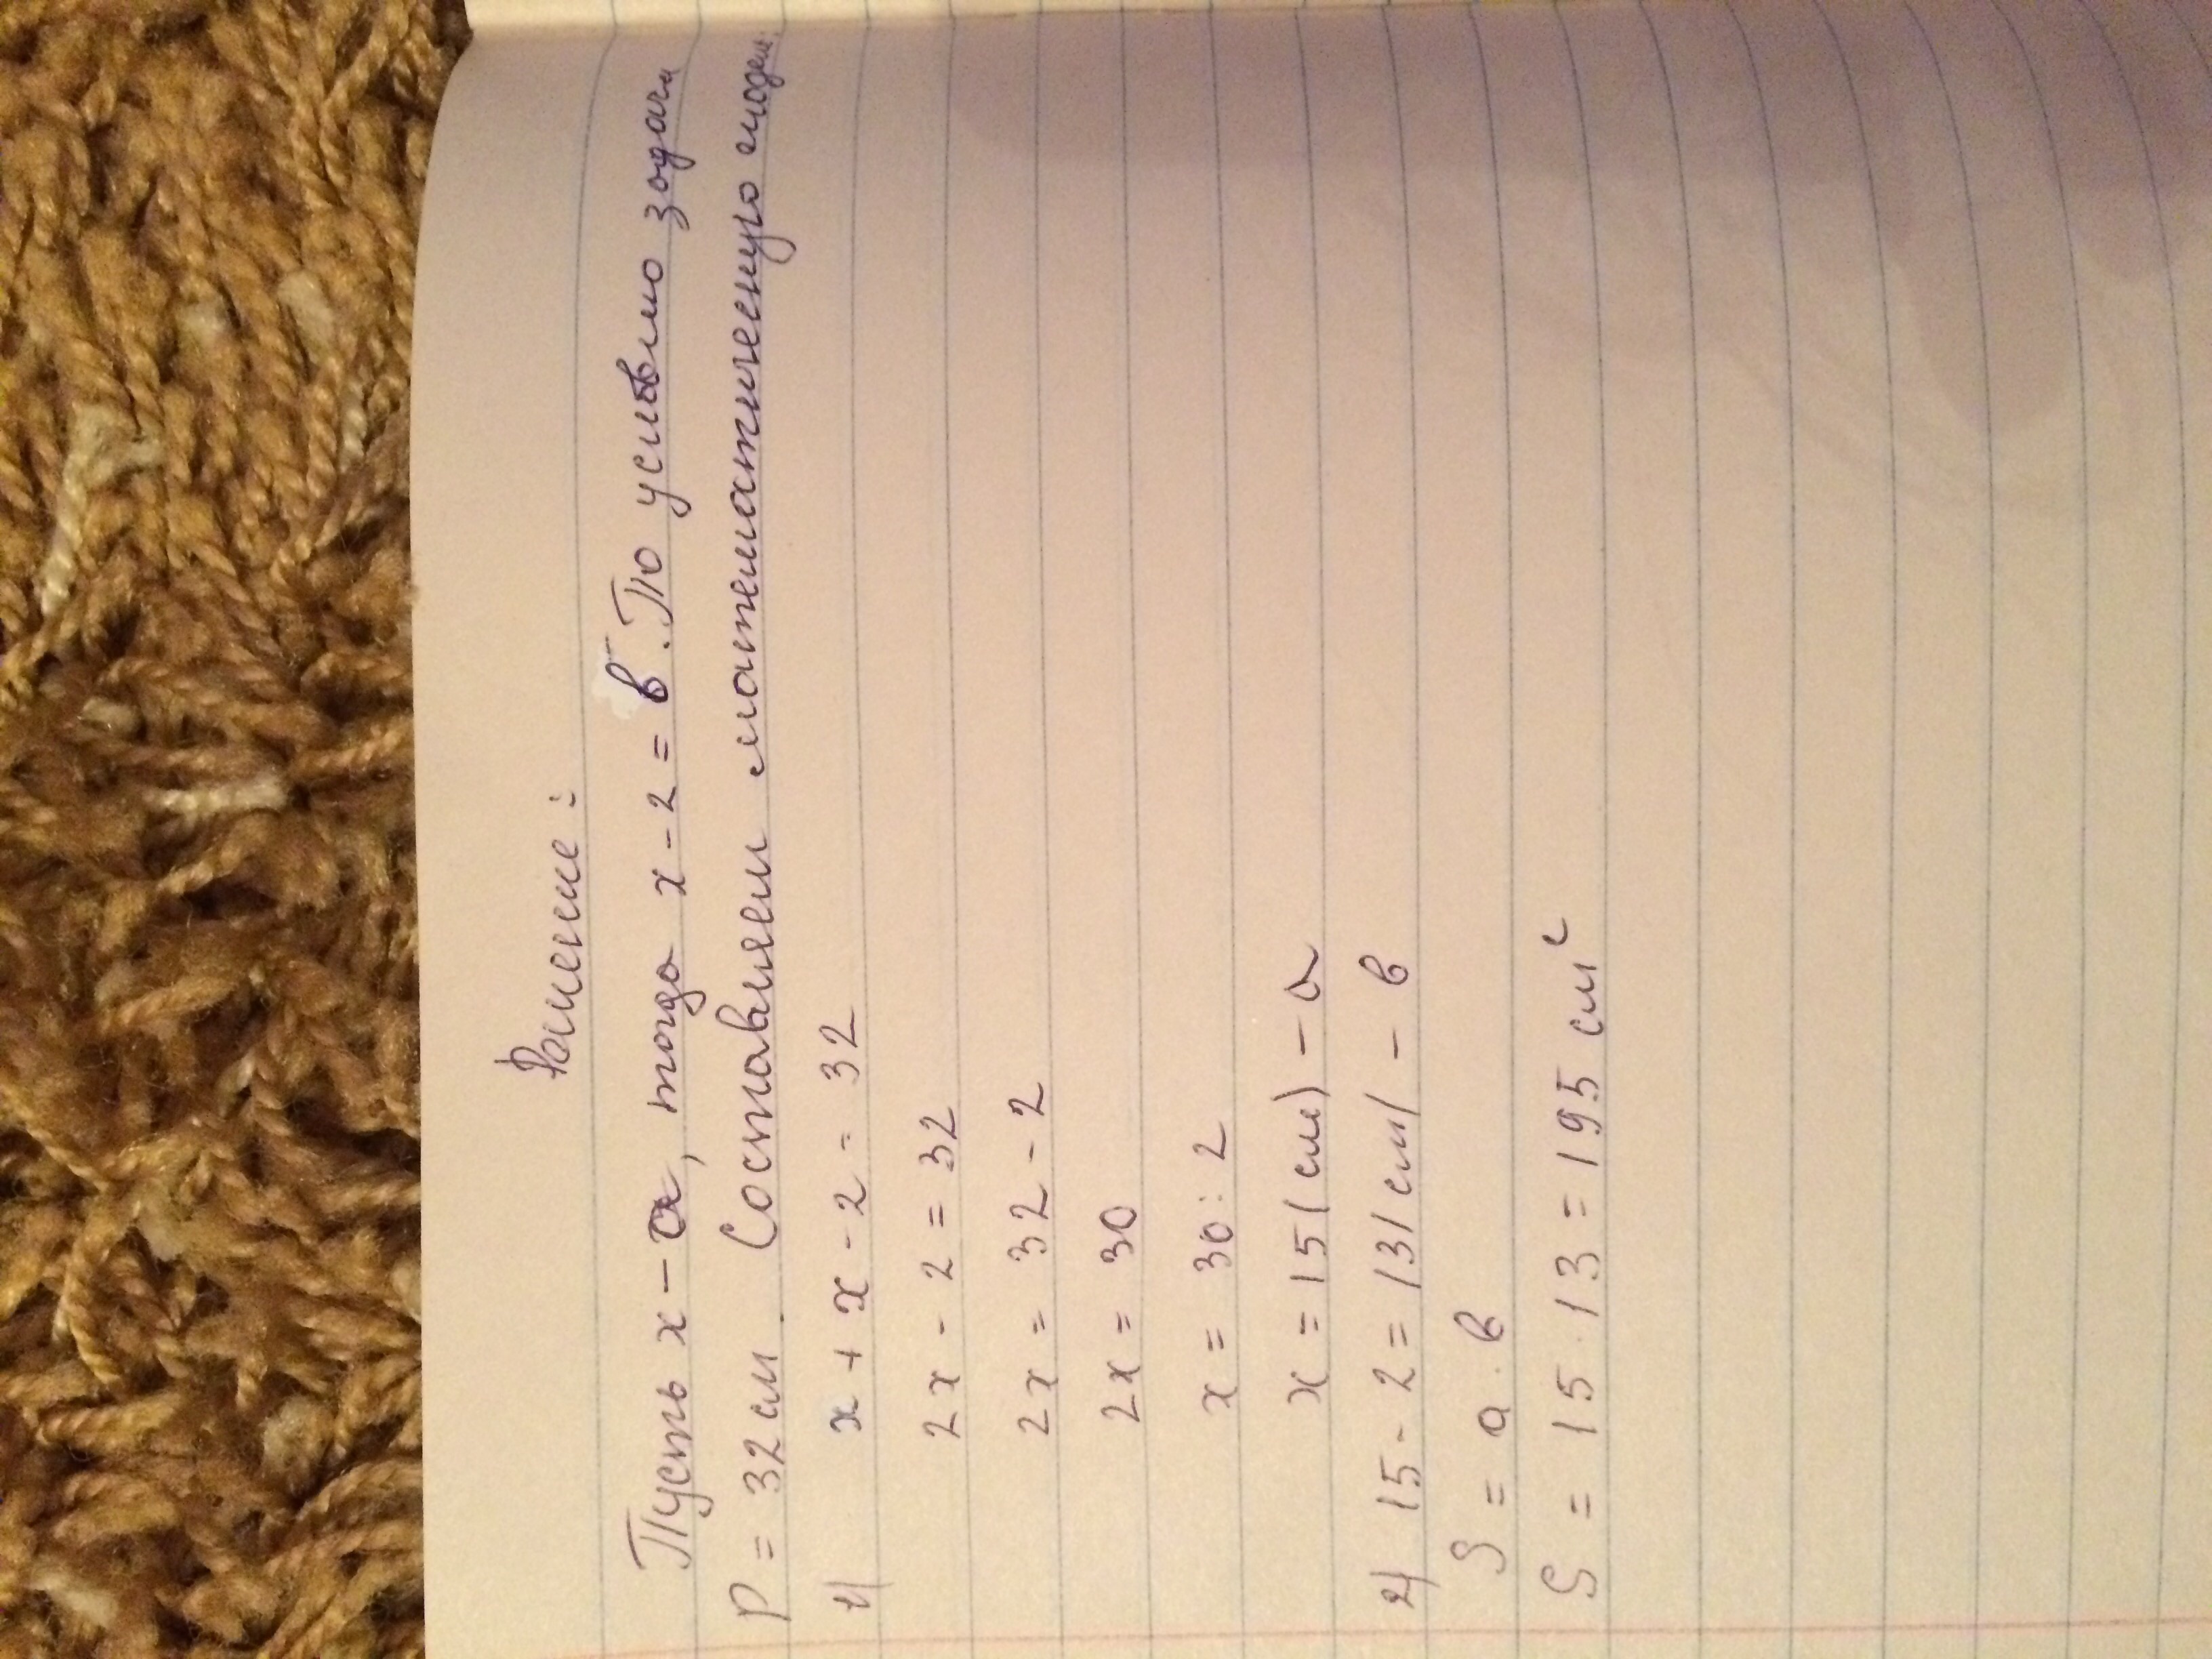 Решение:
Пусть х - а, тогда х - 2 = в. По условию задачи
Р = 32 см. Составляем математическую модель:
1) х + х - 2 = 32
2х - 2 = 32
2х = 32 - 2
2х = 30
х = 30 : 2
х = 15 (см) - а
2) 15 - 2 = 13 (см) - в
S = а · в
S = 15 · 13 = 195 см²